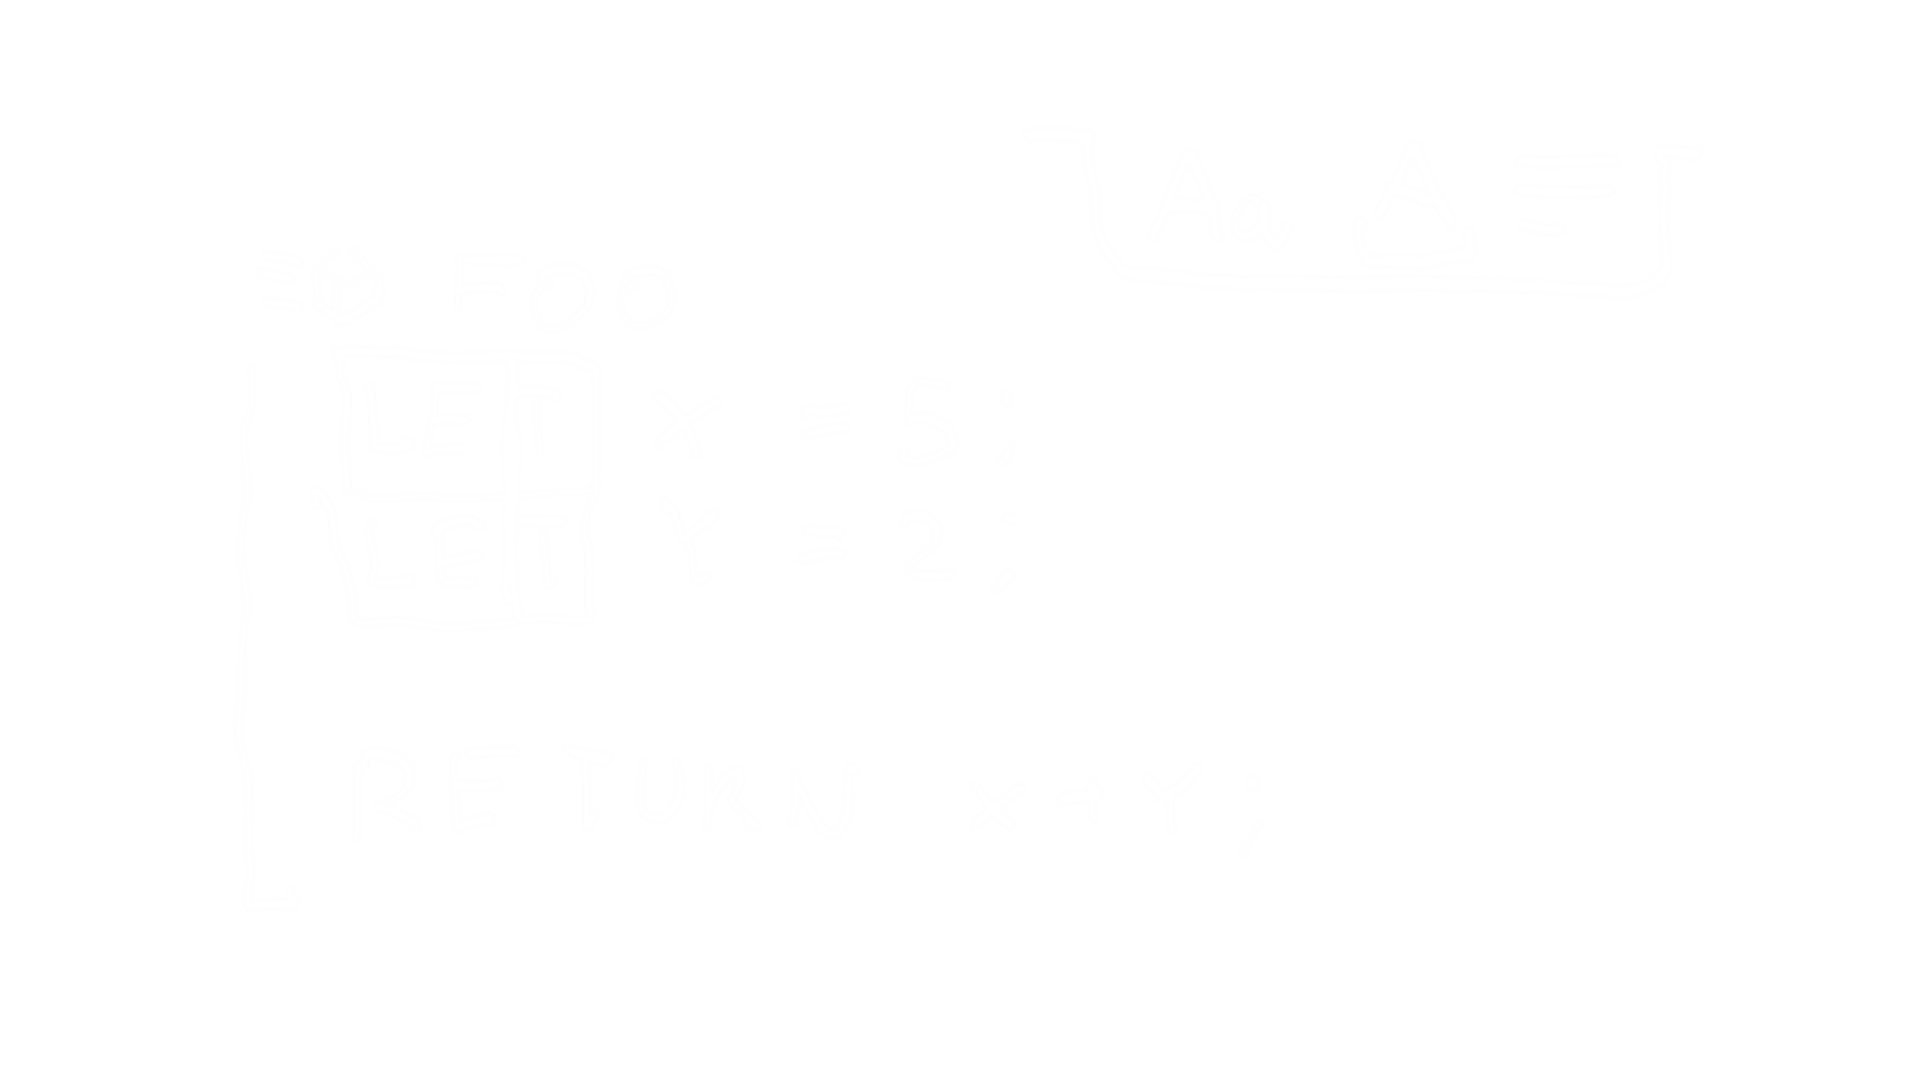 Aa
FOO
LET X = 5;
LET Y = 2;
RETURN X+Y;